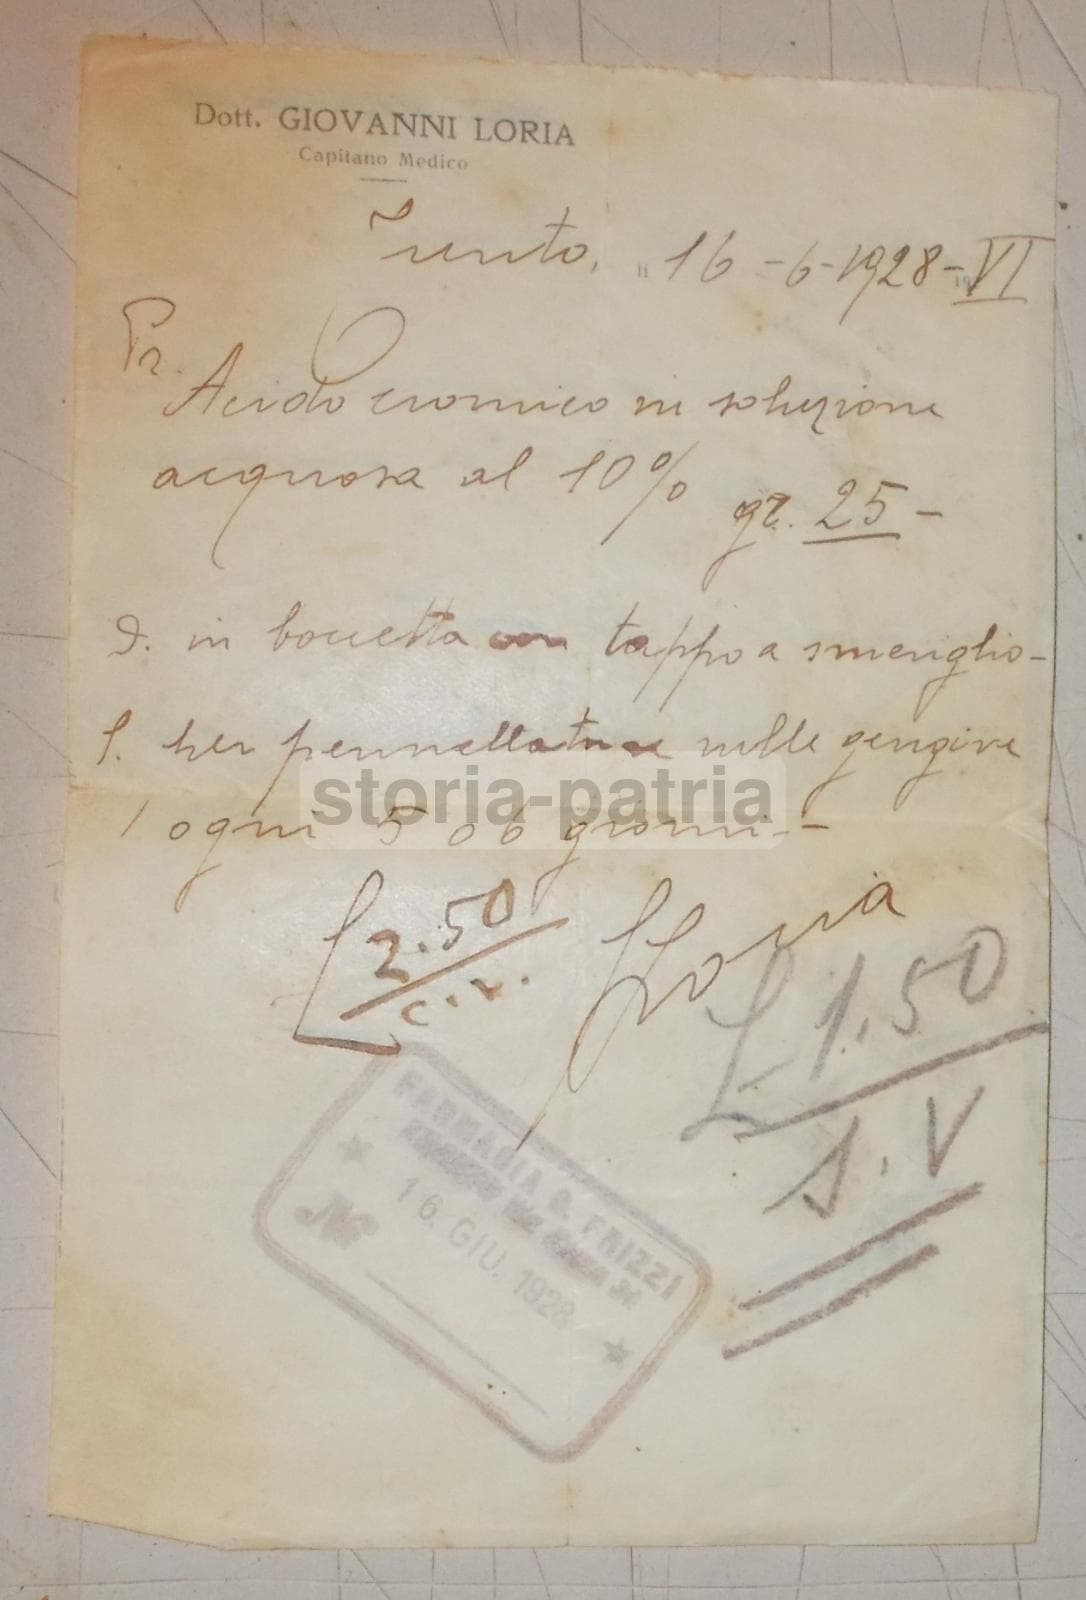 Dott. GIOVANNI LORIA
Capitano Medico
Trento, li 16-6-1928-VI
Pr.
Acido cromico in soluzione
acquosa al 10% gr. 25-
D. in boccetta con tappo a smeriglio-
S. per pennellature sulle gengive
storia-patria
1 ogni 5 o 6 giorni.-
£ 2.50
c.v.
GLoria
£ 1.50
s.v
FARMACIA G. FRIZZI
16. GIU. 1928
No